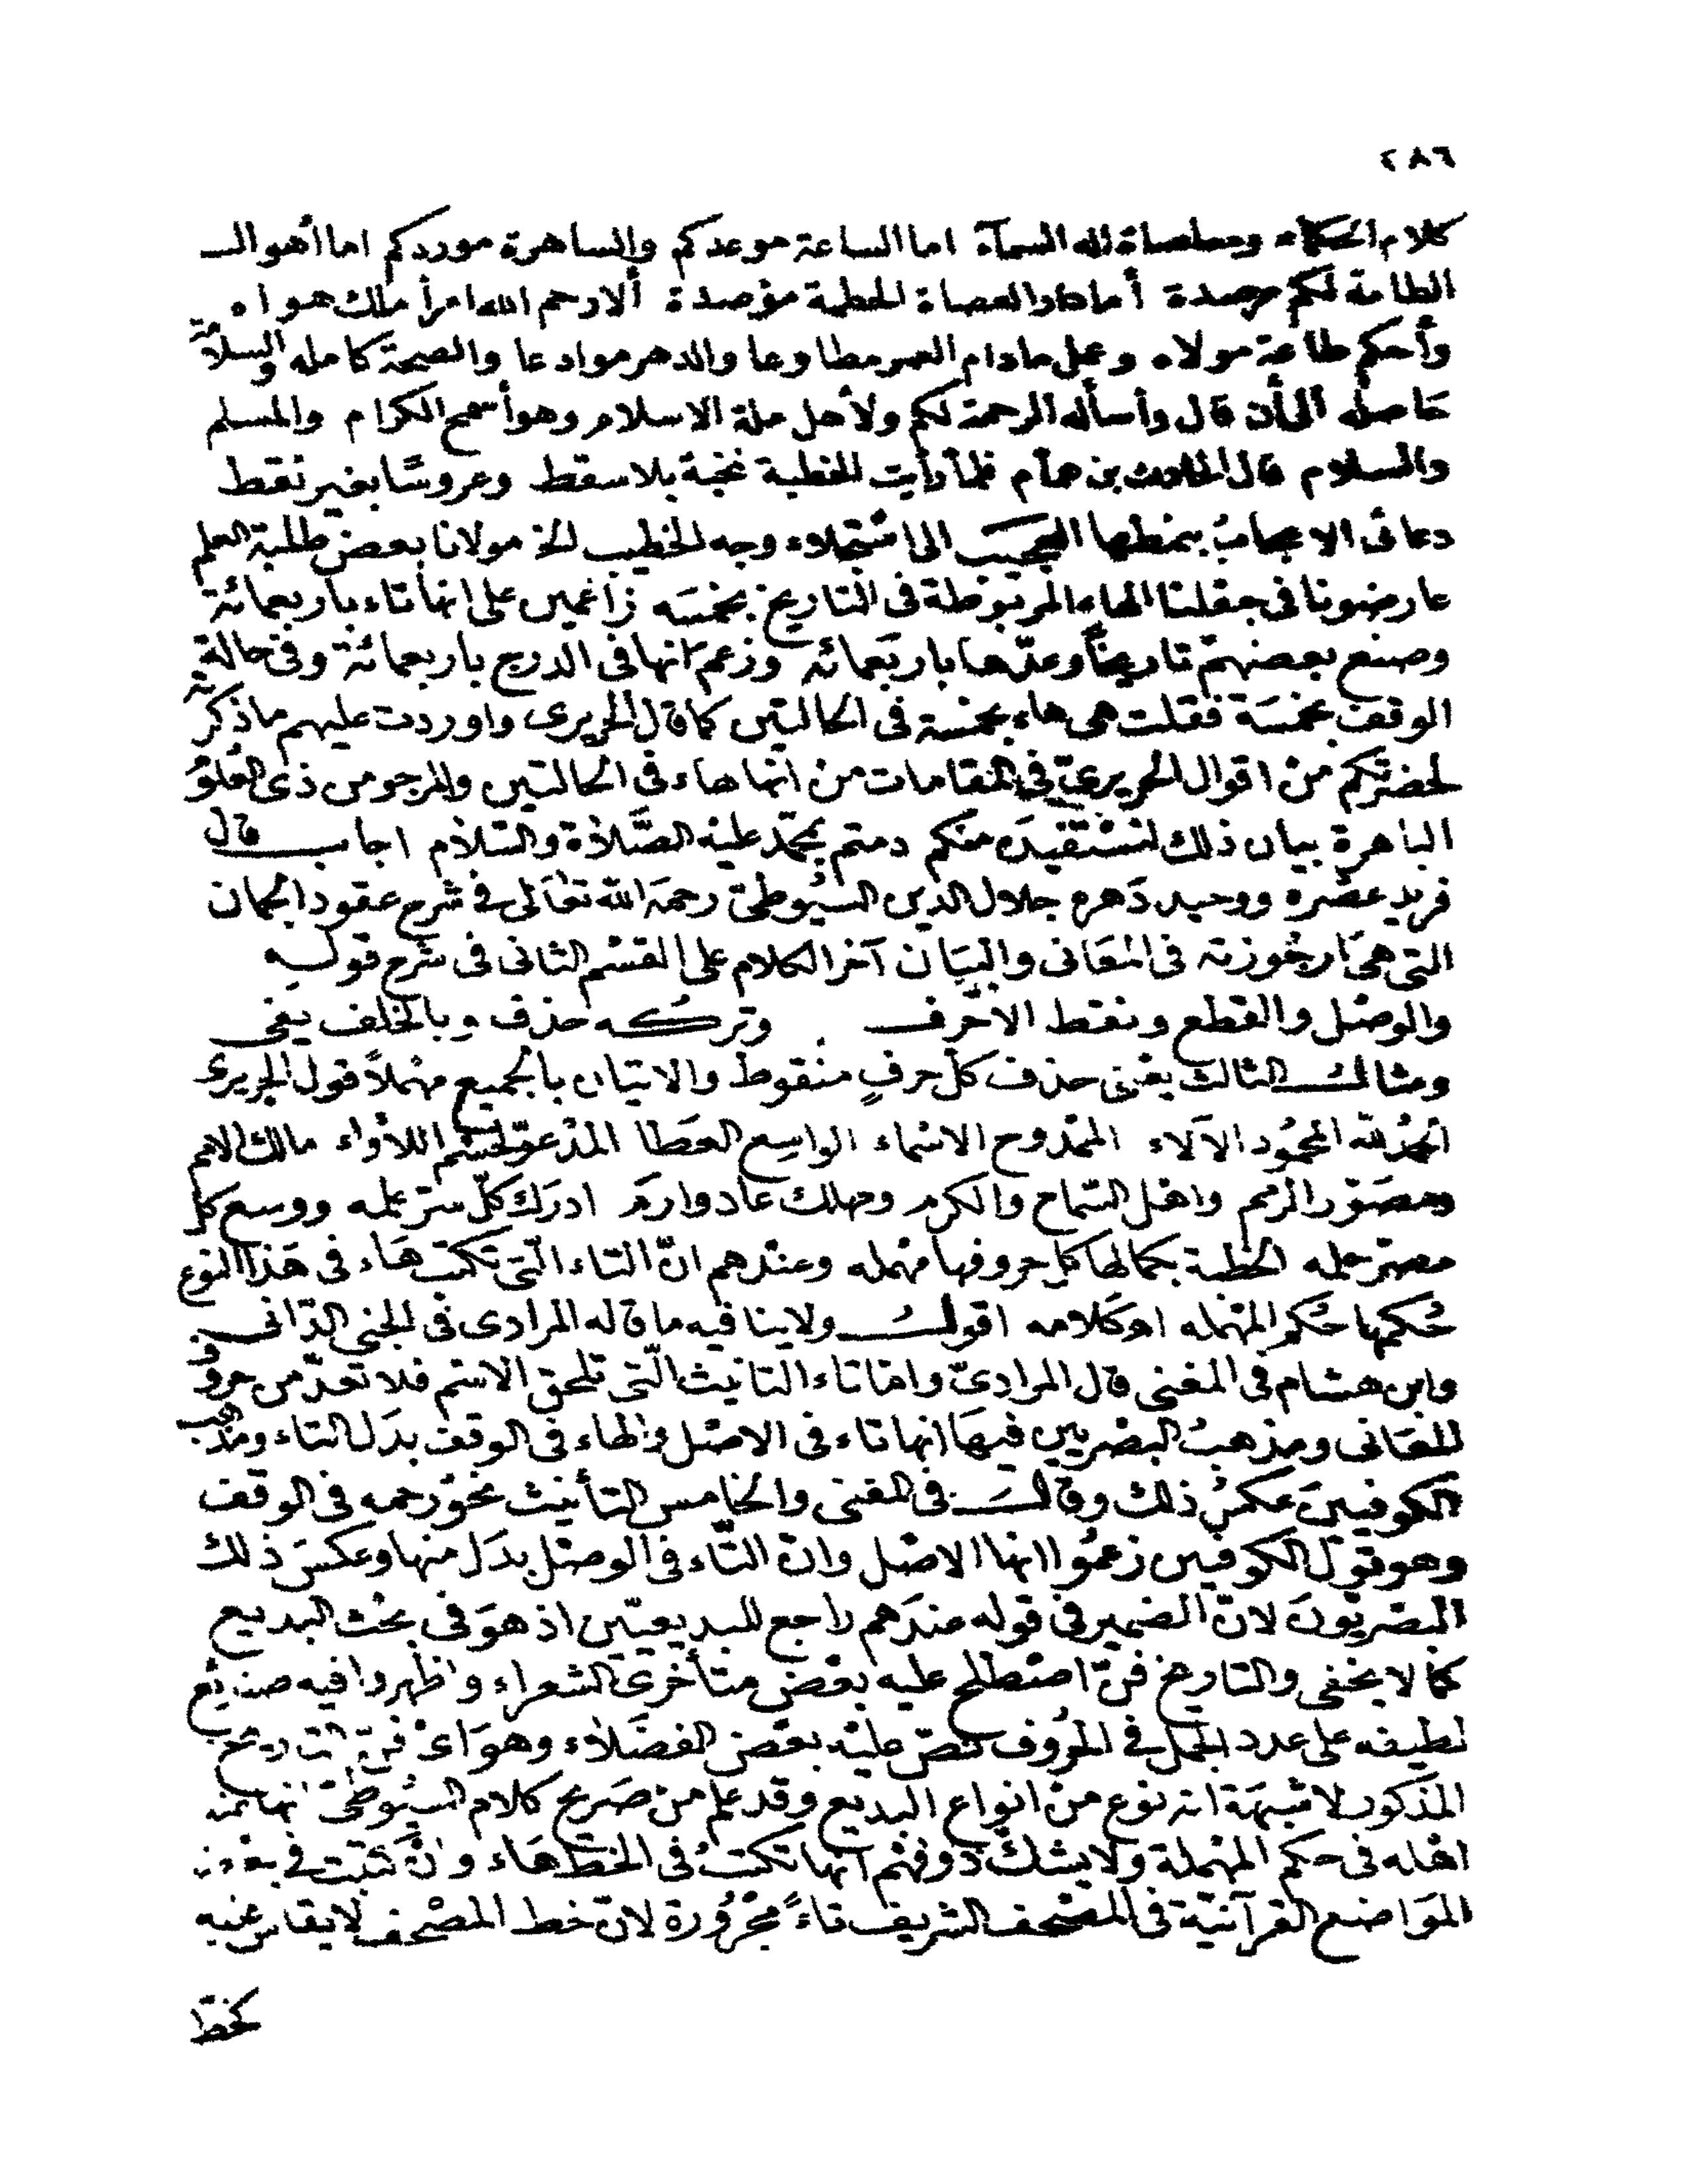 ٢٨٦
كلام الحكماء ومعاصاة اله السمآء اما الساعة موعدكم والساهرة موردكم اما أهوال
الطامة لكم مرصدة أما دار العصاة الحطمة مؤصدة ألا رحم الله امرأ ملك هواه
وأحكم طاعة مولاه وعمل مادام العمر مطاوعا والدهر موادعا والصحة كامله والسلامة
حاصله الى أن قال وأسأله الرحمة لكم ولأهل ملة الاسلام وهو أسمح الكرام والمسلم
والسلام قال الحارث بن همام فلما رأيت الخطبة نخبة بلا سقط وعروسًا بغير نقط
دعانى الاعجابُ بنمطها العجيب الى استجلاء وجه الخطيب الخ مولانا بعض طلبة العلم
عارضونا فى جعلنا الهاء المربوطة فى التاريخ بخمسَه زاعمين على انها تاء باربعمائة
وصنع بعضهم تاريخاً وعدّها باربَعمائه وزعم انها فى الدرج باربعمائة وفى حالة
الوقف بخمسَة فقلت هى هاء بخمسة فى الحالتين كما قال الحريرى واوردت عليهم ما ذكرته
لحضرتكم من اقوال الحريرىّ فى المقامات من انها هاء فى الحالتين والمرجو من ذى العُلوُ
الباهرة بيان ذلك لنستفيدَه منكم دمتم بمحمّد عليه الصَّلاة والسّلام اجاب قال
فريد عصْره ووحيد دَهره جلال الدين السيُوطىّ رحمَه الله تعَالى فى شرح عقود الجمان
التى هى اَرجُوزته فى المعَانى والبيَان آخر الكلام على القسْم الثانى فى شرح قوله
والوصْل والقطع ونقط الاحْرف وتركُه حذف وبالخلف يفى
ومثالُ الثالث يعْنى حذف كلّ حرفٍ منْقوط والاتيان بالجميع مهْملاً قول الحريرى
الحمْدُ لله المحمُود الآلاء الممْدوح الاسْماء الواسِع العَطا المدْعوّ لحسْم اللأواء مالك الامم
ومصَوّر الرّمم واهْل السّماح والكرم ومهلك عاد وارَم ادرَك كلّ سرّ علمه ووسع كلّ
مصرّ حلمه الخطبة بكمالها كل حروفها مهْمله وعنْدهم انّ التاء الّتى تكتب هَاء فى هَذا النوع
حُكمها حُكم المهْمله اه كَلامه اقولُ ولا ينافيه ما قاله المرادى فى الجنى الدّانى
وابن هشام فى المغنى قال المرادىّ وامّا تاء التانيث الّتى تلحق الاسْم فلا تعَدّ من حروف
المعَانى ومذهبُ البصْريين فيهَا انها تاء فى الاصْل والهاء فى الوقف بدَل التاء ومذهب
الكوفيينَ عكسُ ذلك وقالَ فى المغنى والخامس التأنيث نحوْ رحمه فى الوقف
وهو قوْل الكوفيين زعمُوا انها الاصْل وان التّاء فى الوصْل بدَل منها وعكسَ ذلك
البصْريّونَ لانّ الضمير فى قوله عندَهم راجع للبديعيّين اذ هوَ فى بحْث البديع
كما لا يخفى والتاريخ فنّ اصْطلح عليه بعْض متأخرى الشعراء واظهروا فيه صنايع
لطيفه على عدد الجمل فى الحرُوف نصّ عليْه بعْض الفضَلاء وهوَ اىْ فنّ التاريخ
المذكور لا شبهَة انه نوع من انواع البديع وقد علم من صَريح كلام السيُوطىّ انها عند
اهْله فى حكم المهْملة ولا يشكّ ذو فهْم انها تكتبُ فى الخط هَاء وانْ كتبت فى بعْض
الموَاضع القرآنيّة فى المصْحف الشريف تاءً مجْرُورة لانّ خط المصْحف لا يقاس عليه
كخط